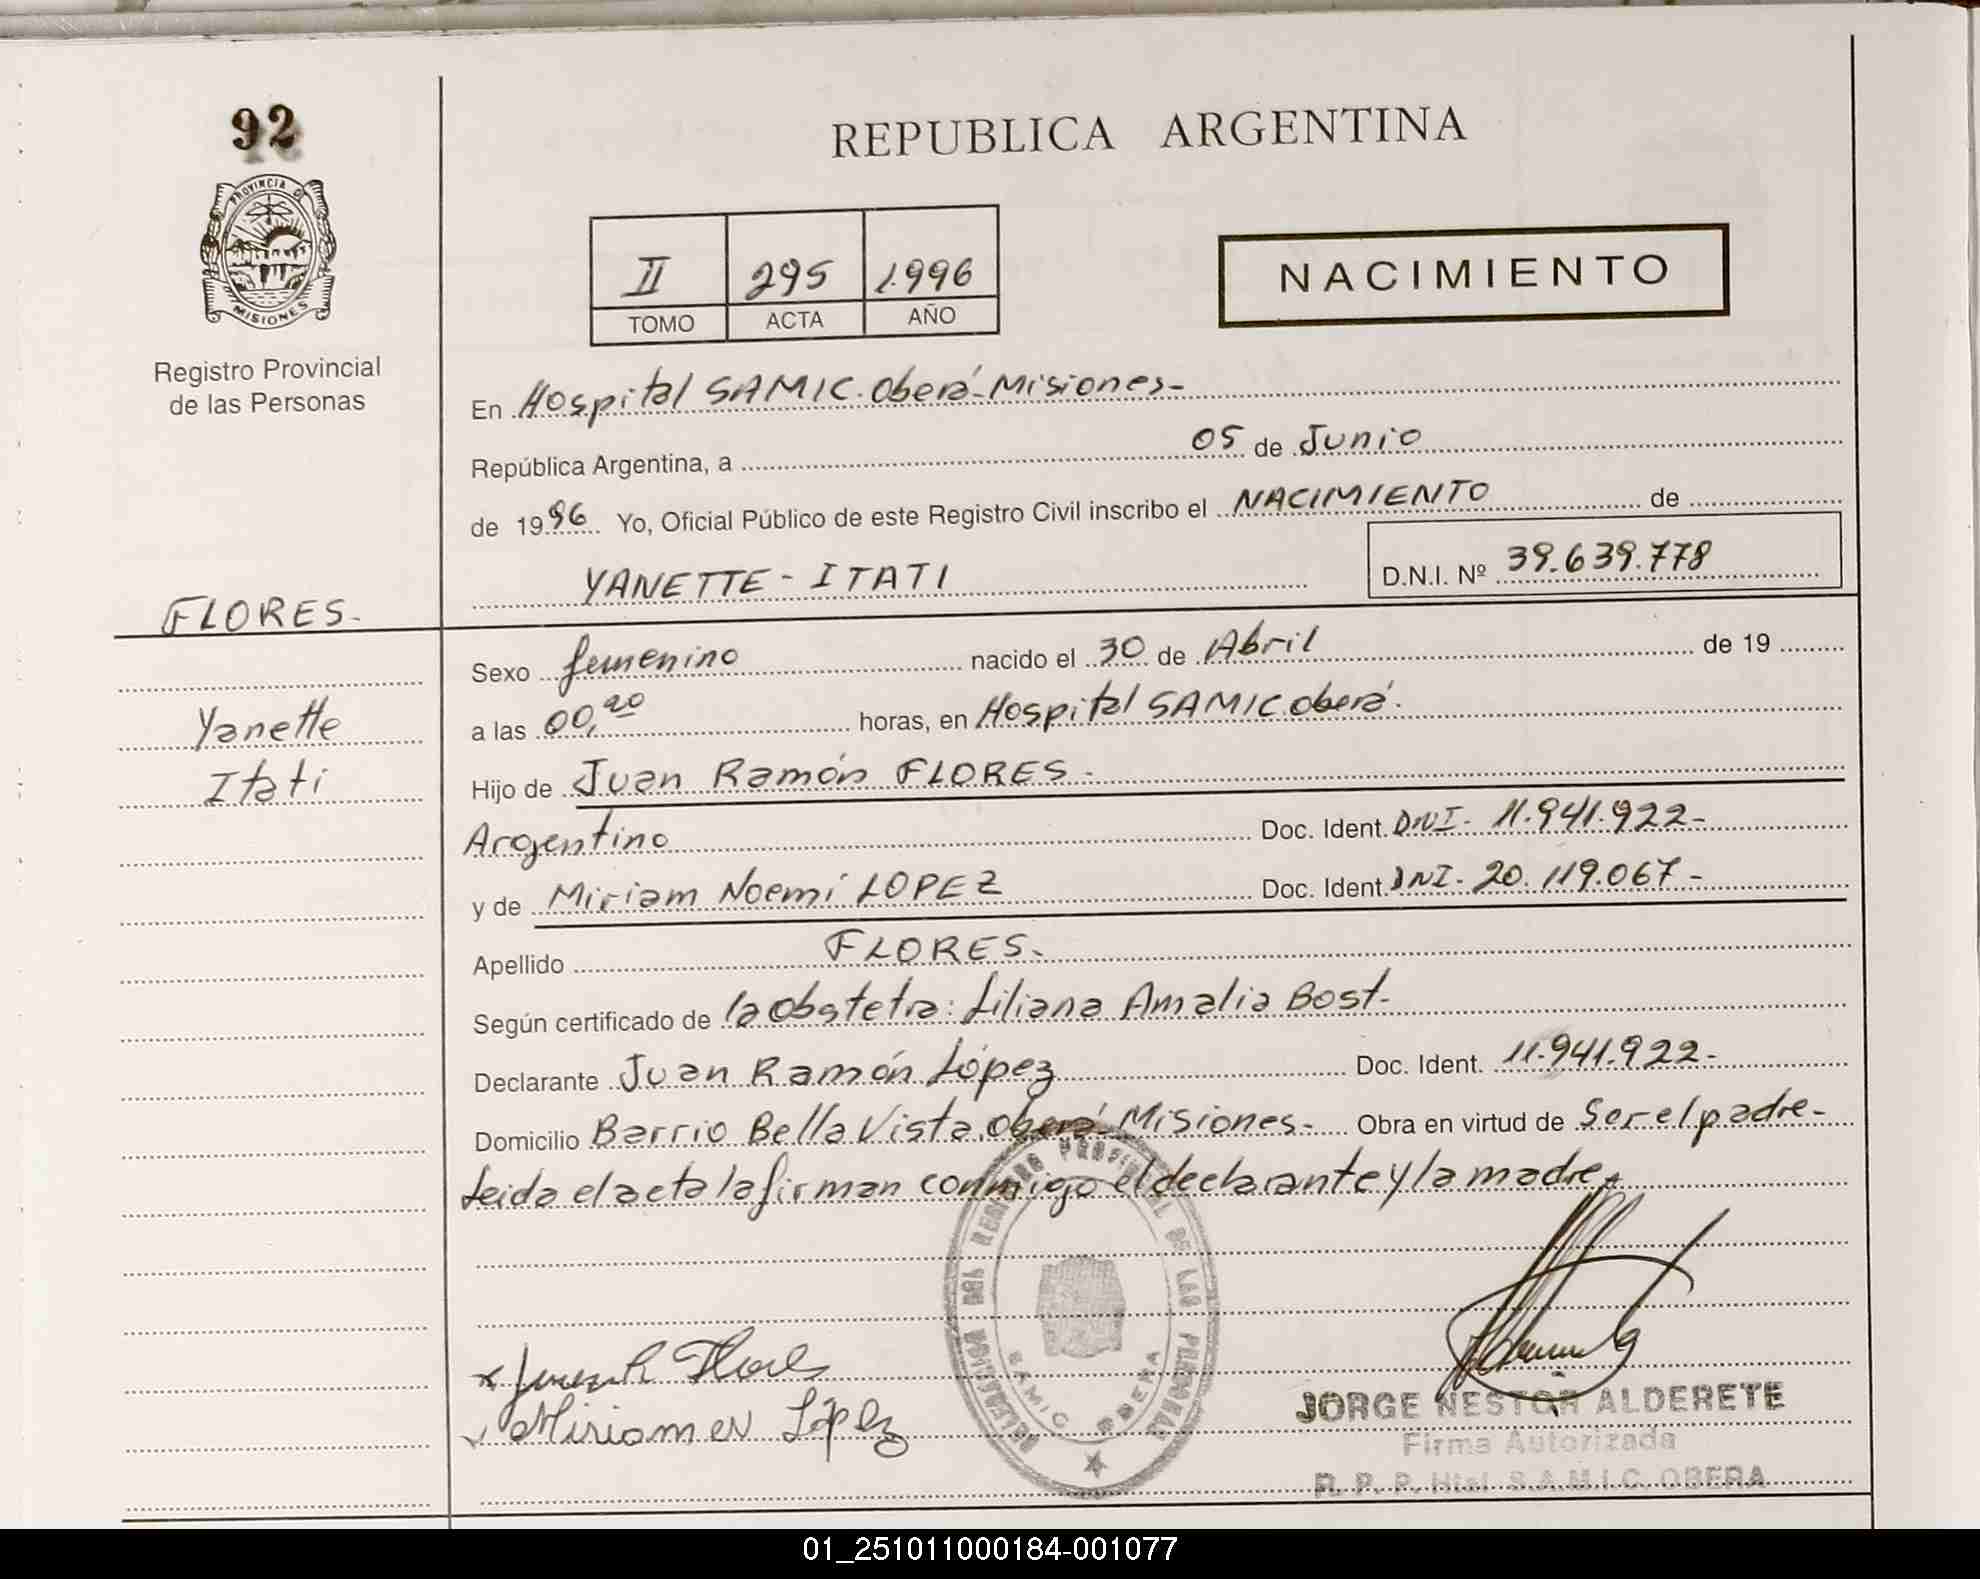 92
PROVINCIA DE
MISIONES
Registro Provincial
de las Personas
REPUBLICA ARGENTINA
II 295 1.996
TOMO ACTA AÑO
NACIMIENTO
En Hospital SAMIC. Oberá-Misiones-
República Argentina, a 05 de Junio
de 1996 Yo, Oficial Público de este Registro Civil inscribo el NACIMIENTO de
YANETTE - ITATI D.N.I. Nº 39.639.778
FLORES-
Yanette
Itati
Sexo femenino nacido el 30 de Abril de 19
a las 00,20 horas, en Hospital SAMIC Oberá.
Hijo de Juan Ramón FLORES-
Argentino Doc. Ident. DNI- 11.941.922-
y de Miriam Noemí LOPEZ Doc. Ident. DNI- 20.119.067-
Apellido FLORES-
Según certificado de la Obstetra: Liliana Amalia Bost-
Declarante Juan Ramón López Doc. Ident. 11.941.922-
Domicilio Barrio Bella Vista, Oberá-Misiones- Obra en virtud de Ser el padre-
Leida el acta la firman conmigo el declarante y la madre-
DELEGACION DEL REGISTRO PROVINCIAL DE LAS PERSONAS
SAMIC OBERA
x Juan R Flores
Miriam N López
JORGE NESTOR ALDERETE
Firma Autorizada
R. P. P. Htal. S.A.M.I.C. OBERA
01_251011000184-001077